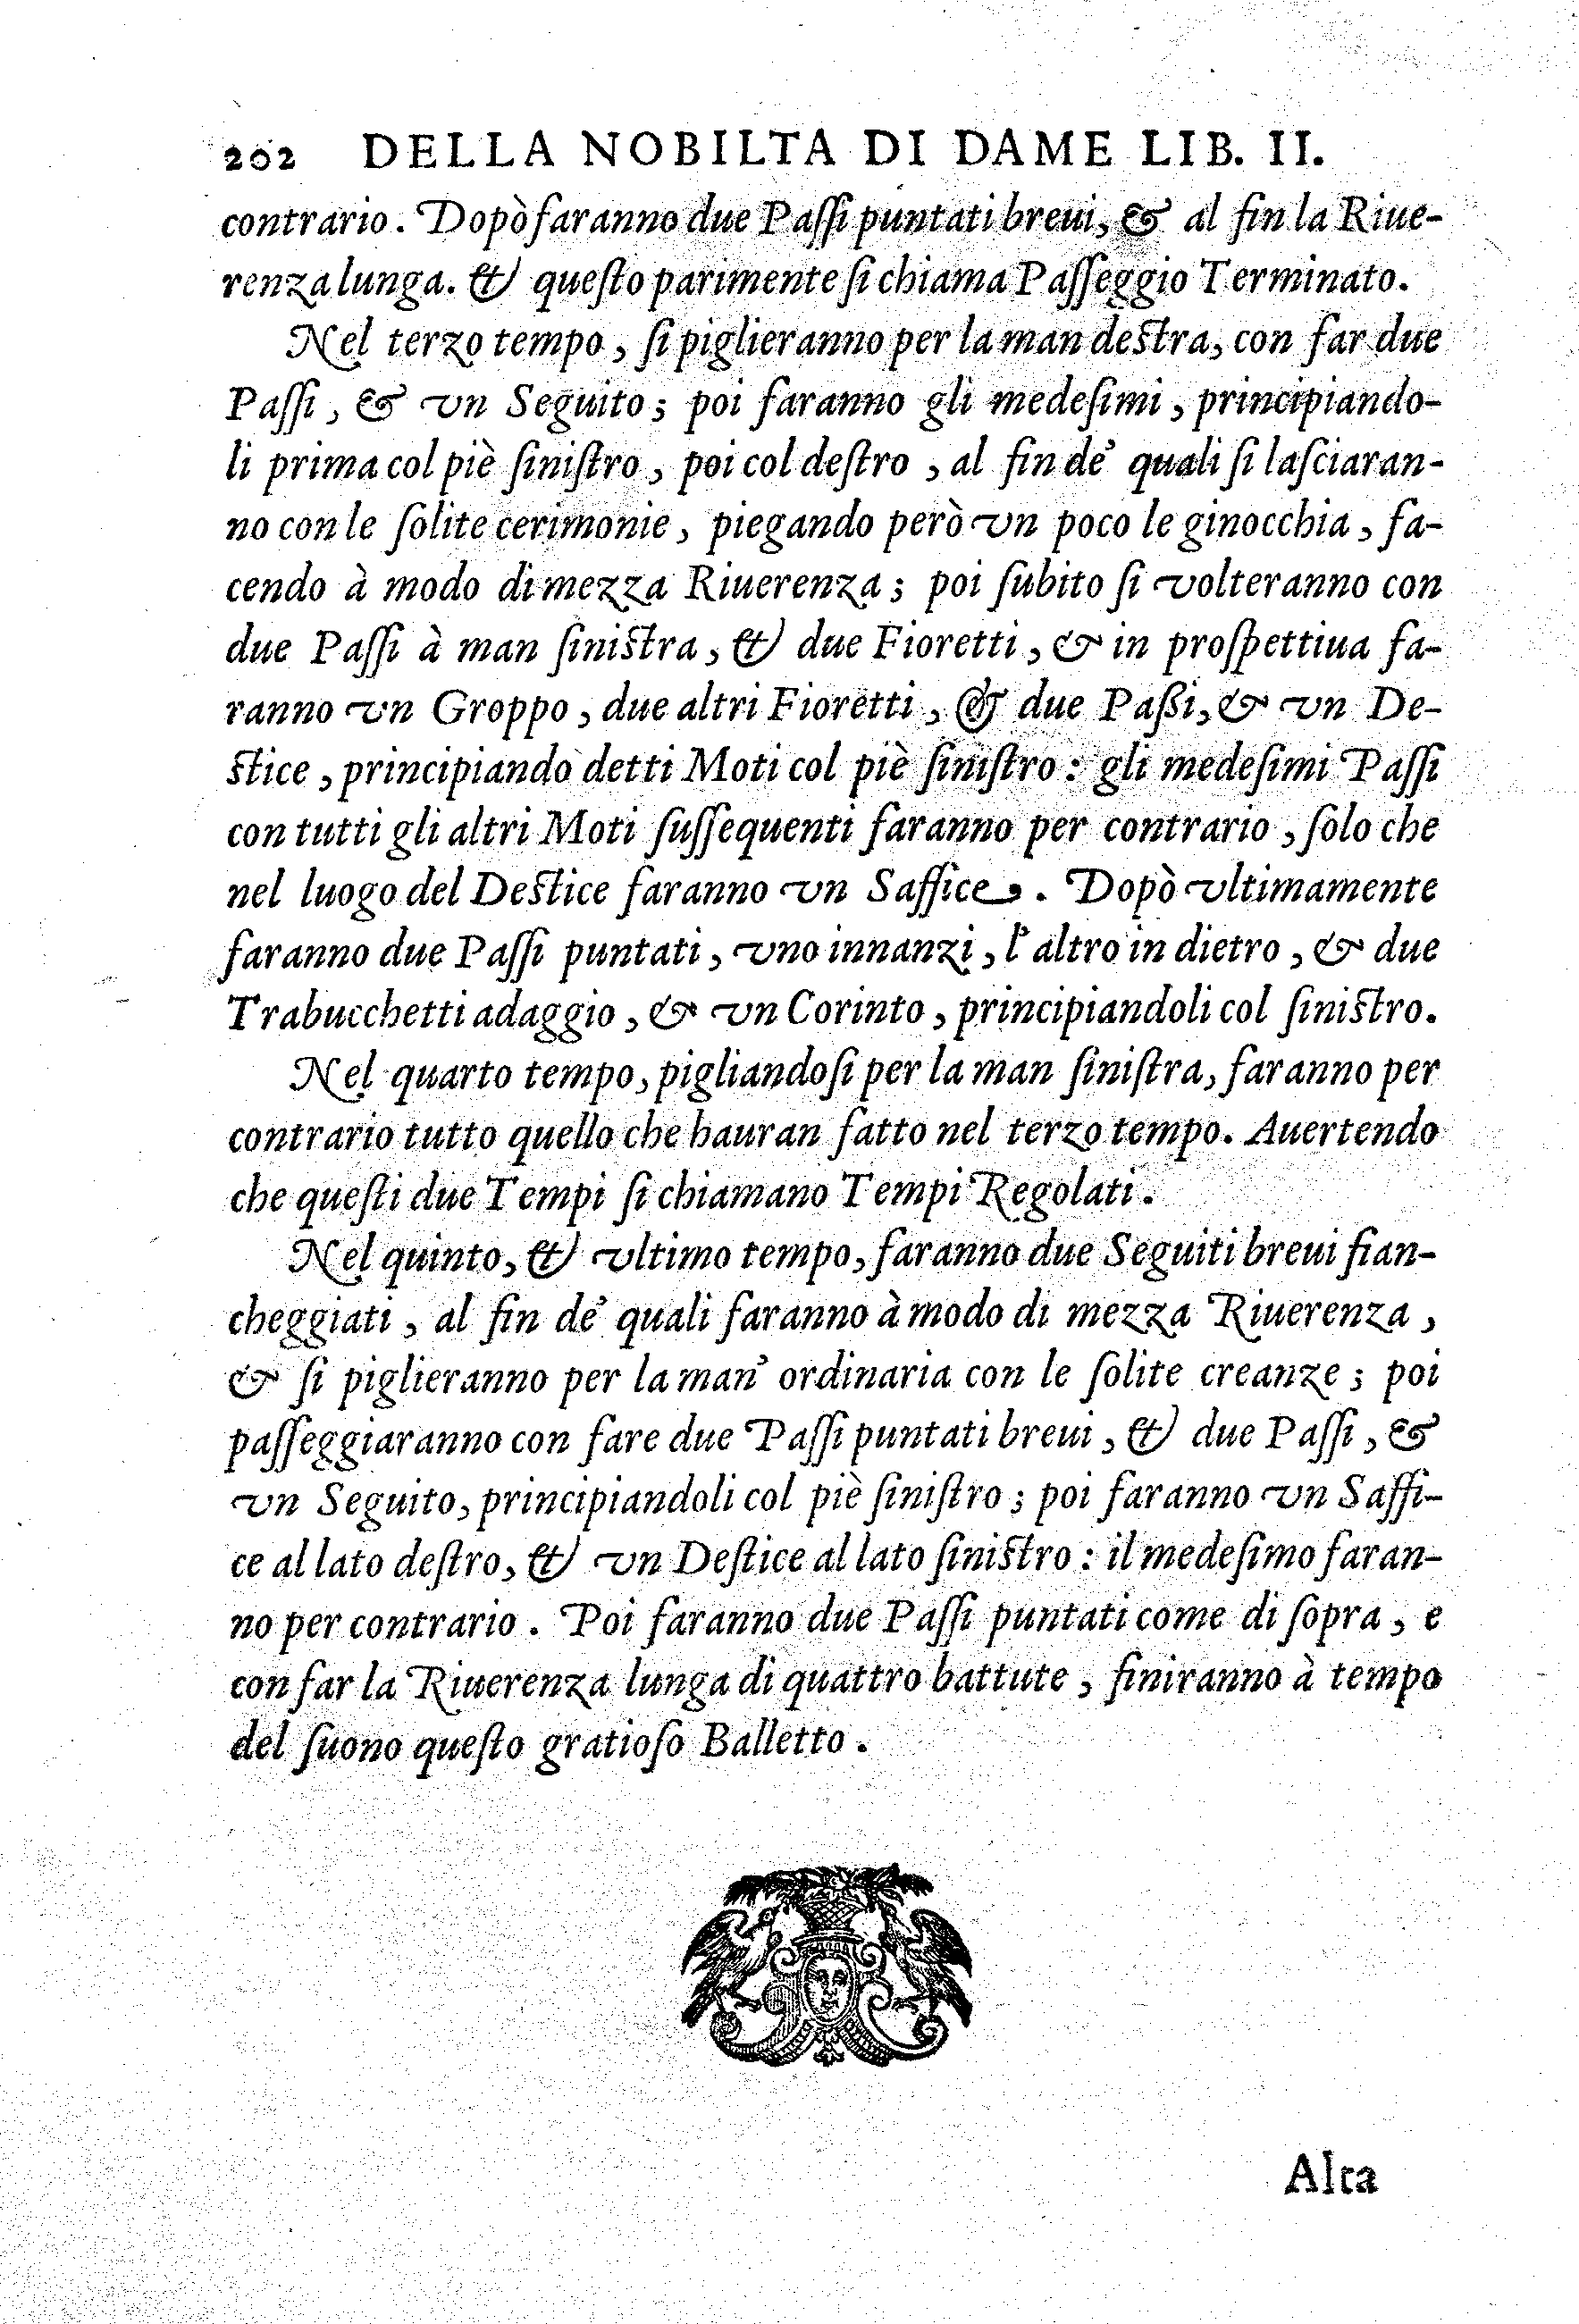 202 DELLA NOBILTA DI DAME LIB. II.
contrario. Dopò faranno due Paſſi puntati breui, & al fin la Riue-
renza lunga. & queſto parimente ſi chiama Paſſeggio Terminato.
Nel terzo tempo, ſi piglieranno per la man deſtra, con far due
Paſſi, & vn Seguito; poi faranno gli medeſimi, principiando-
li prima col piè ſiniſtro, poi col deſtro, al fin de' quali ſi laſciaran-
no con le ſolite cerimonie, piegando però vn poco le ginocchia, fa-
cendo à modo di mezza Riuerenza; poi ſubito ſi volteranno con
due Paſſi à man ſiniſtra, & due Fioretti, & in proſpettiua fa-
ranno vn Groppo, due altri Fioretti, & due Paßi, & vn De-
ſtice, principiando detti Moti col piè ſiniſtro: gli medeſimi Paſſi
con tutti gli altri Moti ſuſſequenti faranno per contrario, ſolo che
nel luogo del Deſtice faranno vn Saffice. Dopò vltimamente
faranno due Paſſi puntati, vno innanzi, l'altro in dietro, & due
Trabucchetti adaggio, & vn Corinto, principiandoli col ſiniſtro.
Nel quarto tempo, pigliandoſi per la man ſiniſtra, faranno per
contrario tutto quello che hauran fatto nel terzo tempo. Auertendo
che queſti due Tempi ſi chiamano Tempi Regolati.
Nel quinto, & vltimo tempo, faranno due Seguiti breui fian-
cheggiati, al fin de' quali faranno à modo di mezza Riuerenza,
& ſi piglieranno per la man' ordinaria con le ſolite creanze; poi
paſſeggiaranno con fare due Paſſi puntati breui, & due Paſſi, &
vn Seguito, principiandoli col piè ſiniſtro; poi faranno vn Saffi-
ce al lato deſtro, & vn Deſtice al lato ſiniſtro: il medeſimo faran-
no per contrario. Poi faranno due Paſſi puntati come di ſopra, e
con far la Riuerenza lunga di quattro battute, finiranno à tempo
del ſuono queſto gratioſo Balletto.
Alta